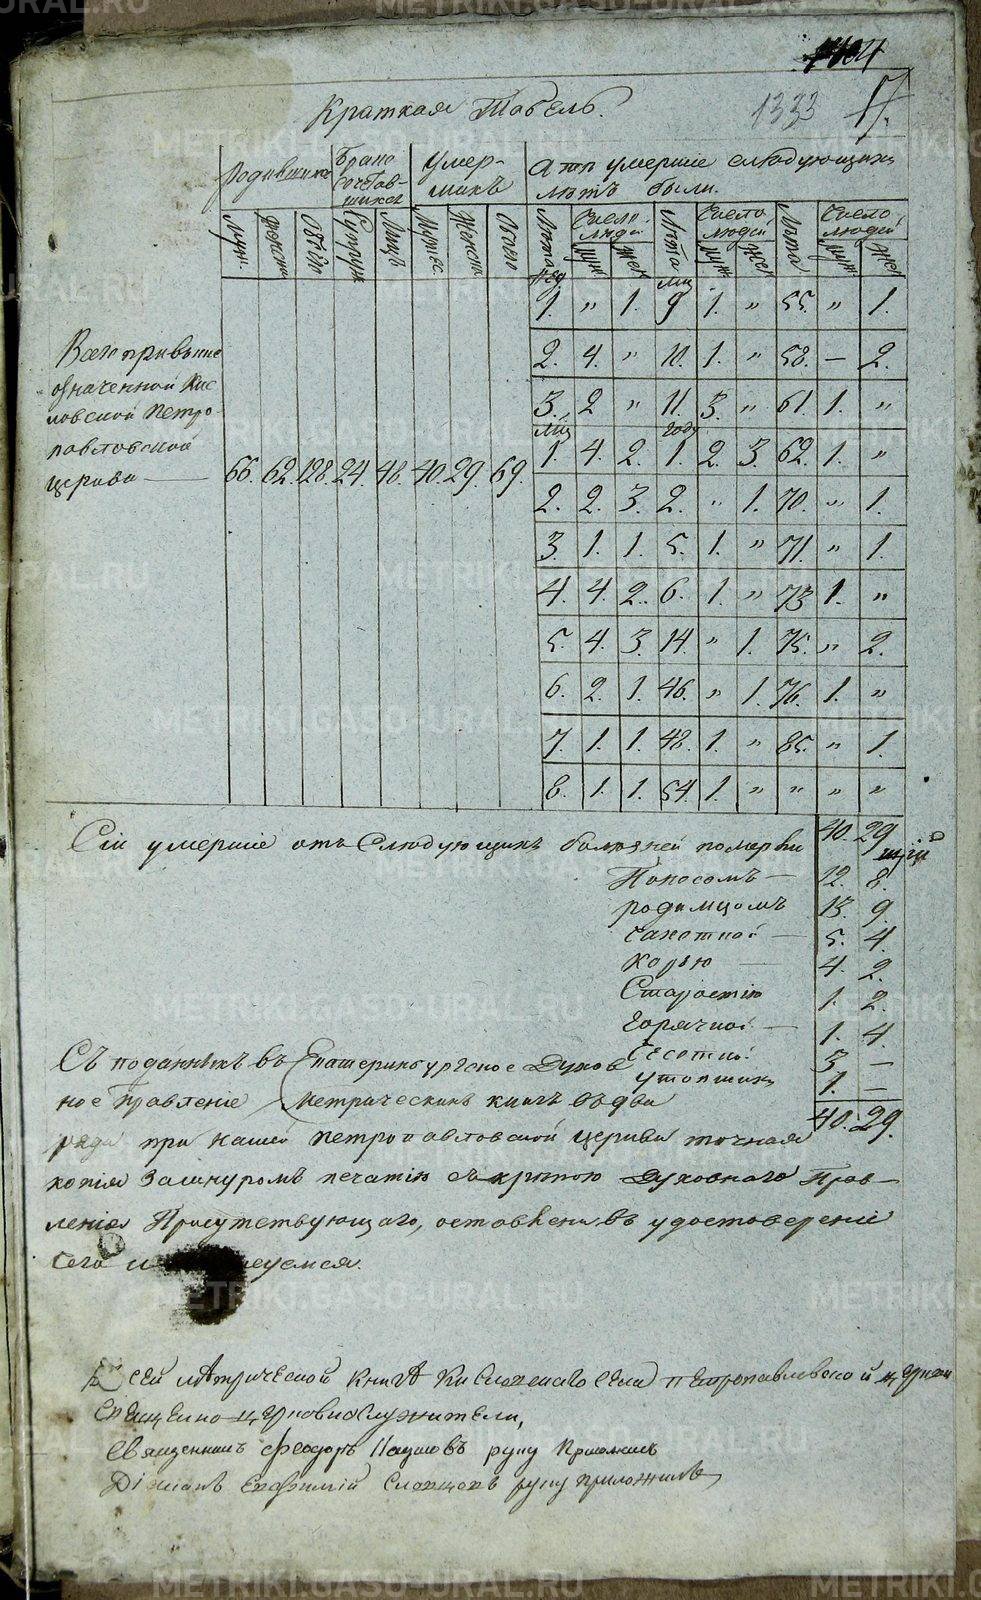 104
Краткая Табель.
1333
17.
Родившихся
Брако
сочетав-
шихся
Умер-
шихъ
А тѣ умершіе слѣдующихъ
лѣтъ были.
Муж. Женска Обоего Супруж Лицъ Мужес. Женска Обоего
Лѣта Число людей Муж. Жен. Лѣта Число людей Муж. Жен. Лѣта Число людей Муж. Жен.
Нед Мц
1. " 1. 9 1. " 55. " 1.
2. 4. " 10. 1. " 58. — 2.
3. 2 " 11. 3. " 61. 1. "
Мц Году
1. 4. 2. 1. 2. 3. 62. 1. "
2. 2. 3. 2. " 1. 70. " 1.
3. 1. 1. 5. 1. " 71. " 1.
4. 4. 2. 6. 1. " 73 1. "
5. 4. 3. 14. " 1. 75. " 2.
6. 2. 1. 46. " 1. 76. 1. "
7. 1. 1. 48. 1. " 85. " 1.
8. 1. 1. 54. 1. " " " "
Всего при выше
означенной Кис
ловской Петро-
павловской
церкви — 66. 62. 128. 24. 48. 40. 29. 69.
40. 29
Сіи умершіе отъ слѣдующихъ болѣзней померли
Поносомъ — 12. 8.
родимцомъ 13. 9.
Чахоткой — 5. 4.
Корью — 4. 2.
Старостію 1. 2.
Горячкой — 1. 4.
3 —
утопшихъ 1. —
40. 29.
Съ поданныхъ въ Екатеринбургское Духов
ное Правленіе Метрическихъ книгъ въ два
ряда при нашей Петропавловской церкви точная
копія за шнуромъ печатію скрѣпою Духовнаго Прав-
ленія Присутствующаго, оставлена, въ удостовереніи
сего и
К сей мѣтрической книгѣ Кисловскаго села Петропавловской церкви
Священно-церковнослужители,
Священникъ Феодоръ руку приложилъ
Діаконъ Евфимій Словцовъ руку приложилъ
METRIKI.GASO-URAL.RU